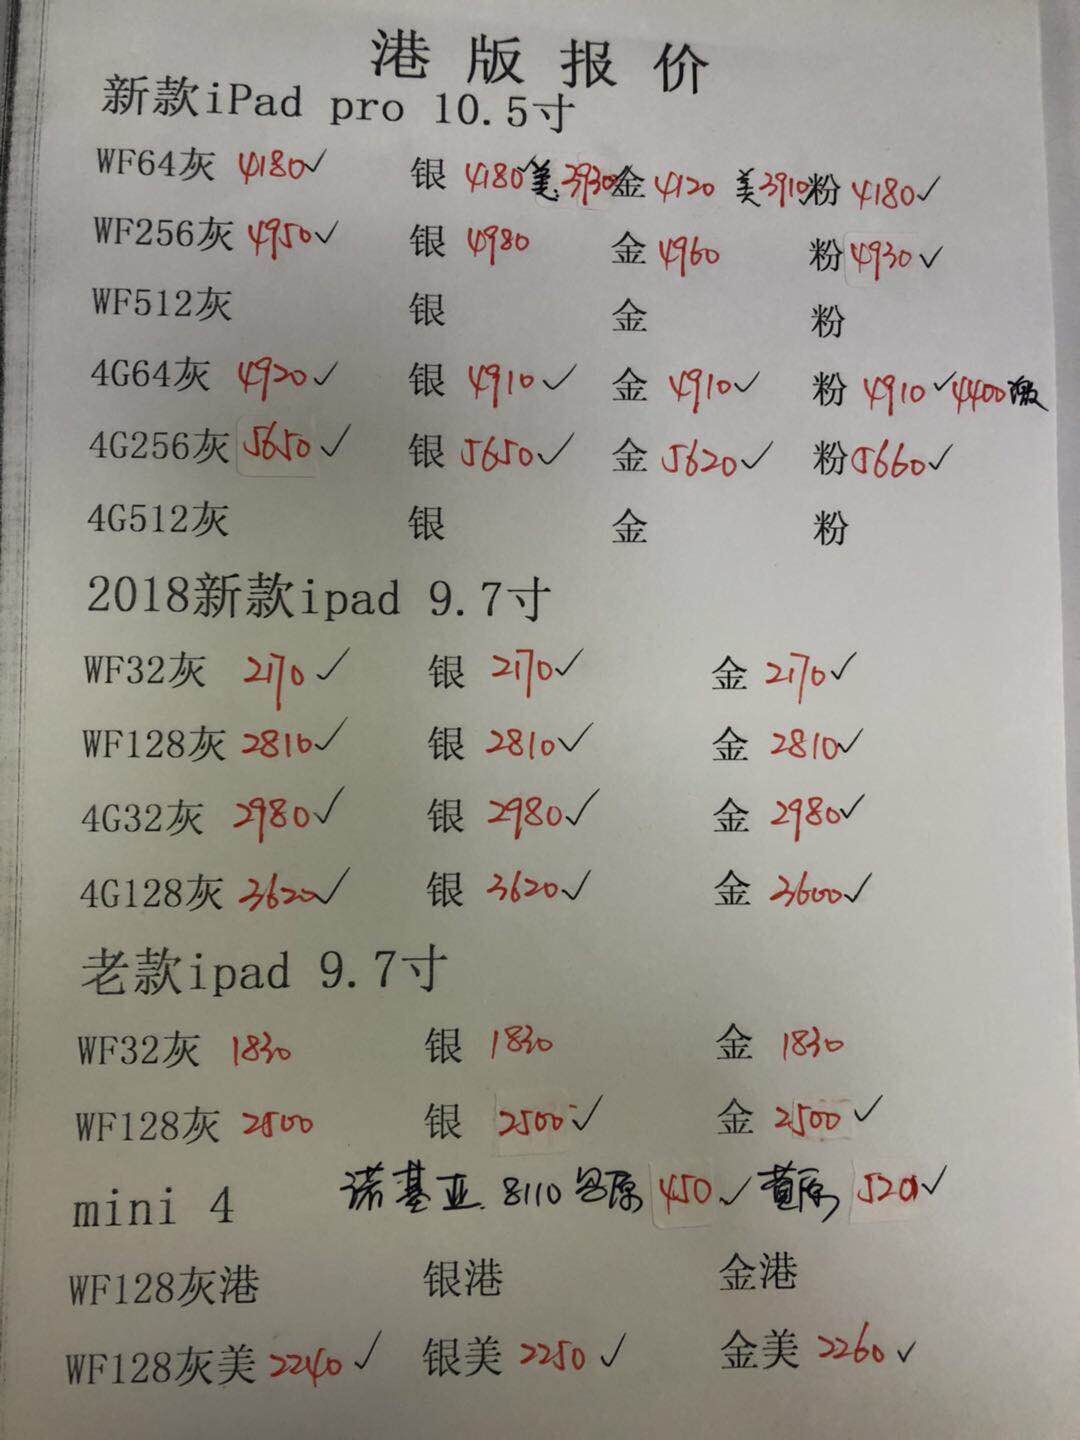 港版报价
新款iPad pro 10.5寸
WF64灰 4180✓ 银 4180 美3930 金 4120 美3910 粉 4180✓
WF256灰 4950✓ 银 4980 金 4960 粉 4930✓
WF512灰 银 金 粉
4G64灰 4920✓ 银 4910✓ 金 4910✓ 粉 4910✓ 4400激
4G256灰 5650✓ 银 5650✓ 金 5620✓ 粉 5660✓
4G512灰 银 金 粉
2018新款ipad 9.7寸
WF32灰 2170✓ 银 2170✓ 金 2170✓
WF128灰 2810✓ 银 2810✓ 金 2810✓
4G32灰 2980✓ 银 2980✓ 金 2980✓
4G128灰 3620✓ 银 3620✓ 金 3600✓
老款ipad 9.7寸
WF32灰 1830 银 1830 金 1830
WF128灰 2500 银 2500✓ 金 2500✓
mini 4 诺基亚 8110 450✓ 520✓
WF128灰港 银港 金港
WF128灰美 2240✓ 银美 2250✓ 金美 2260✓